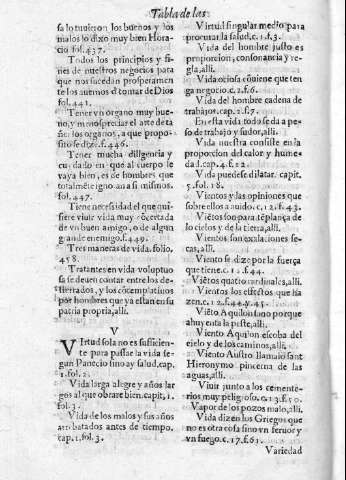 Tabla de las
sa lo tuuieron los buenos y los
malos lo dizo muy bien Hora-
cio fol.437.
Todos los principios y fi-
nes de nuestros negocios para
que nos sucedan prosperamen
te los auemos d̄ tomar de Dios
fol.441.
Tener vn organo muy bue-
no, y menospreciar el arte de ta
ñer los organos, a que propo-
sito se dize.f.446.
Tener mucha diligencia y
cuydado en que al cuerpo le
vaya bien, es de hombres que
totalmēte ignoran a si mismos.
fol.447.
Tiene necesidad el que qui-
siere viuir vida muy cōcertada
de vn buen amigo, o de algun
grande enemigo.f.449.
Tres maneras de vida. folio.
458.
Tratantes en vida voluptuo
sa se deuen contar entre los de-
sterrados, y los cōtemplatiuos
por hombres que ya estan en su
patria propria, alli.
V
Virtud sola no es suficien-
te para passar la vida se-
gun Panecio sino ay salud, cap.
1.fol.2.
Vida larga alegre y años lar
gos al que obrare bien.capit,1.
fol.3.
Vida de los malos y sus años
arrebatados antes de tiempo.
cap.1,fol.3.
Virtud singular medio para
procurar la salud.c.1.f.3.
Vida del hombre justo es
proporcion, consonancia y re-
gla, alli.
Vida ociosa cōuiene que ten
ga negocio.c.2.f.6.
Vida del hombre cadena de
trabajos.cap.2.f.7.
En esta vida todo se da a pe-
so de trabajo y sudor, alli.
Vida nuestra consiste en la
proporcion del calor y hume-
dad.cap.4.f.12.
Vida puedese dilatar. capit.
5.fol.18.
Vientos y las opiniones que
sobre ellos a auido.c.12.f.43.
Viētos son para tēplança de
lo cielos y de la tierra, alli.
Vientos son exalaciones se-
cas, alli.
Viento se dize por la fuerça
que tiene.c.12.f.44.
Viētos quatro cardinales, alli.
Vientos los efectos que ha
zen.c.12.f.44.y.45.
Viēto Aquilon sano porque
ahuyenta la peste, alli.
Viento Aquilon escoba del
cielo y de los caminos, alli.
Viento Austro llamalo sant
Hieronymo pincerna de las
aguas, alli.
Viuir junto a los cemente-
rios muy peligroso.c.13.f.50.
Vapor de los pozos malo, alli.
Vida dizen los Griegos que
no es otra cosa sino vn feruor y
vn fuego.c.17.f.63.
Variedad